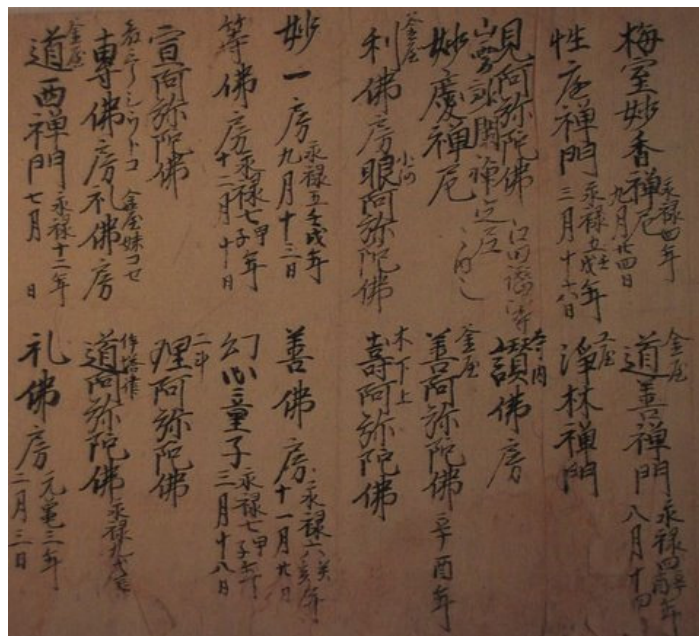 梅室妙香禅尼 永禄四年
九月廿四日
性応禅門 永禄五壬戌年
三月十六日
見阿弥陀佛
妙慶禅尼
釜屋
利佛房 小河 眼阿弥陀佛
妙一房 永禄五壬戌年
九月十三日
等佛房 永禄七甲子年
十二月十日
宣阿弥陀佛
専佛房 礼佛房
釜屋
道西禅門 永禄十二年
七月 日
釜屋
道善禅門 永禄四辛酉年
八月十四
浄林禅門
寺内
讃佛房
釜屋
善阿弥陀佛 辛酉年
木下上
壽阿弥陀佛
善佛房 永禄六癸亥年
十一月廿日
幻心童子 永禄七甲子年
三月十八日
理阿弥陀佛
道阿弥陀佛
礼佛房 元亀三年
二月三日